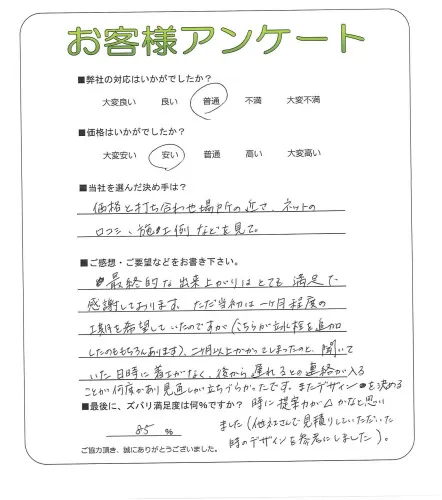 お客様アンケート
■弊社の対応はいかがでしたか？
大変良い 良い 普通 不満 大変不満
■価格はいかがでしたか？
大変安い 安い 普通 高い 大変高い
■当社を選んだ決め手は？
価格と打ち合わせ場所の近さ、ネットの
口コミ、施工例などを見て。
■ご感想・ご要望などをお書き下さい。
最終的な出来上がりはとても満足で
感謝しております。ただ当初は一ヶ月程度の
工期を希望していたのですが（こちらが立水栓を追加
したのももちろんあります）、二ヶ月以上かかってしまったのと、聞いて
いた日時に着工がなく、後から遅れるとの連絡が入る
ことが何度かあり見通しが立ちづらかったです。またデザインを決める
時に提案力が△かなと思い
ました（他社さんで見積りしていただいた
時のデザインを参考にしました）。
■最後に、ズバリ満足度は何％ですか？
85 %
ご協力頂き、誠にありがとうございました。